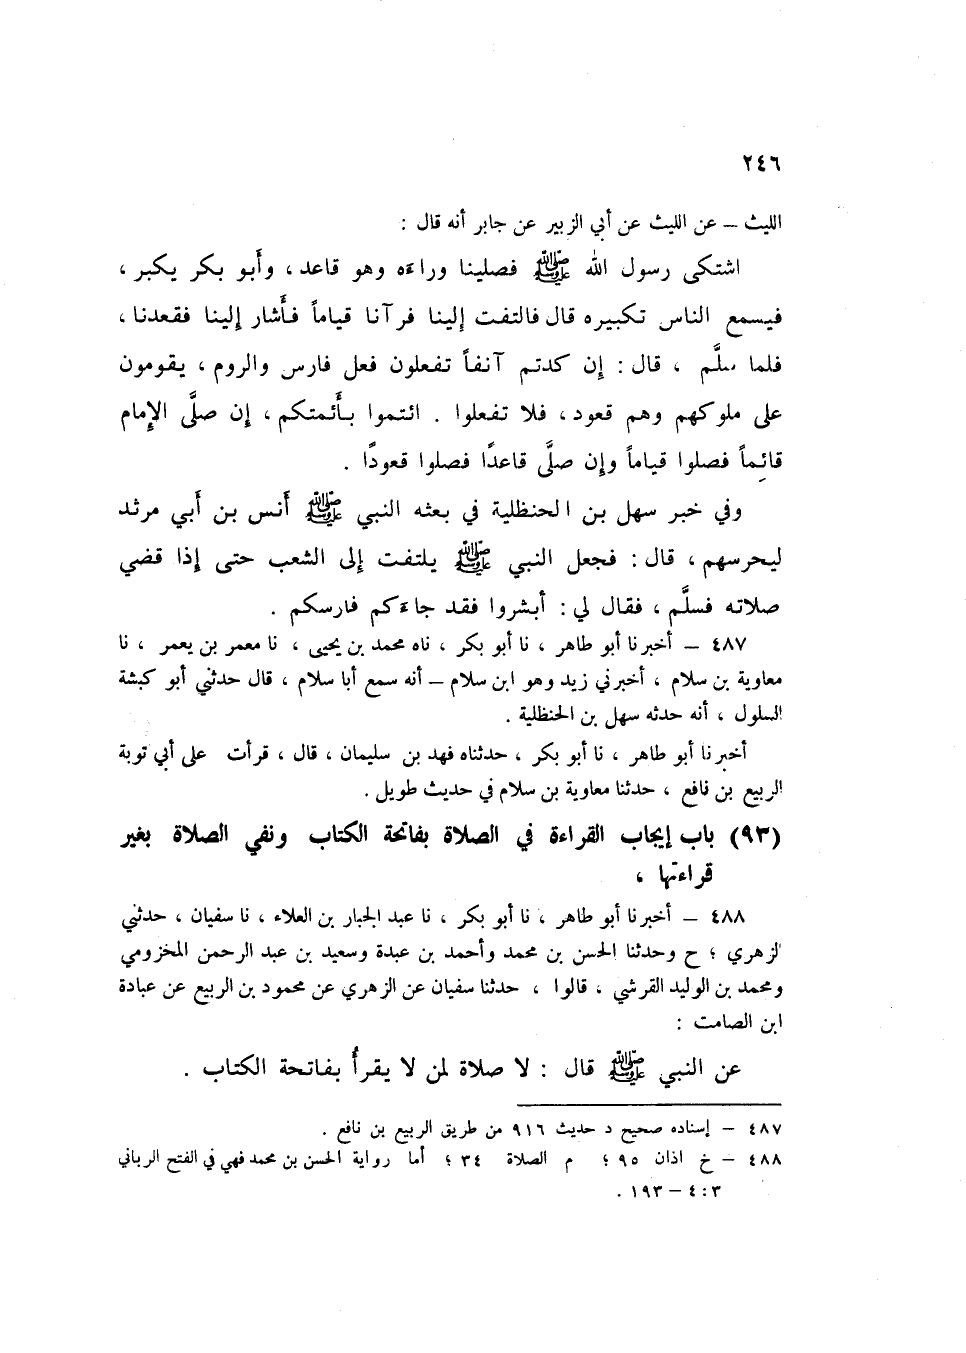 ٢٤٦
الليث – عن الليث عن أبي الزبير عن جابر أنه قال :
اشتكى رسول الله ﷺ فصلينا وراءه وهو قاعد ، وأبو بكر يكبر ،
فيسمع الناس تكبيره قال فالتفت إلينا فرآنا قياماً فأشار إلينا فقعدنا ،
فلما سلَّم ، قال : إن كدتم آنفاً تفعلون فعل فارس والروم ، يقومون
على ملوكهم وهم قعود ، فلا تفعلوا . ائتموا بأئمتكم ، إن صلَّى الإمام
قائماً فصلوا قياماً وإن صلَّى قاعدًا فصلوا قعودًا .
وفي خبر سهل بن الحنظلية في بعثه النبي ﷺ أنس بن أبي مرثد
ليحرسهم ، قال : فجعل النبي ﷺ يلتفت إلى الشعب حتى إذا قضي
صلاته فسلَّم ، فقال لي : أبشروا فقد جاءكم فارسكم .
٤٨٧ – أخبرنا أبو طاهر ، نا أبو بكر ، ناه محمد بن يحيى ، نا معمر بن يعمر ، نا
معاوية بن سلام ، أخبرني زيد وهو ابن سلام – أنه سمع أبا سلام ، قال حدثني أبو كبشة
السلول ، أنه حدثه سهل بن الحنظلية .
أخبرنا أبو طاهر ، نا أبو بكر ، حدثناه فهد بن سليمان ، قال ، قرأت على أبي توبة
الربيع بن نافع ، حدثنا معاوية بن سلام في حديث طويل .
(٩٣) باب إيجاب القراءة في الصلاة بفاتحة الكتاب ونفي الصلاة بغير
قراءتها ،
٤٨٨ – أخبرنا أبو طاهر ، نا أبو بكر ، نا عبد الجبار بن العلاء ، نا سفيان ، حدثني
لزهري ؛ ح وحدثنا الحسن بن محمد وأحمد بن عبدة وسعيد بن عبد الرحمن المخزومي
ومحمد بن الوليد القرشي ، قالوا ، حدثنا سفيان عن الزهري عن محمود بن الربيع عن عبادة
ابن الصامت :
عن النبي ﷺ قال : لا صلاة لمن لا يقرأُ بفاتحة الكتاب .
٤٨٧ – إسناده صحيح د حديث ٩١٦ من طريق الربيع بن نافع .
٤٨٨ – خ اذان ٩٥ ؛ م الصلاة ٣٤ ؛ أما رواية الحسن بن محمد فهي في الفتح الرباني
٣ : ٤ – ١٩٣ .